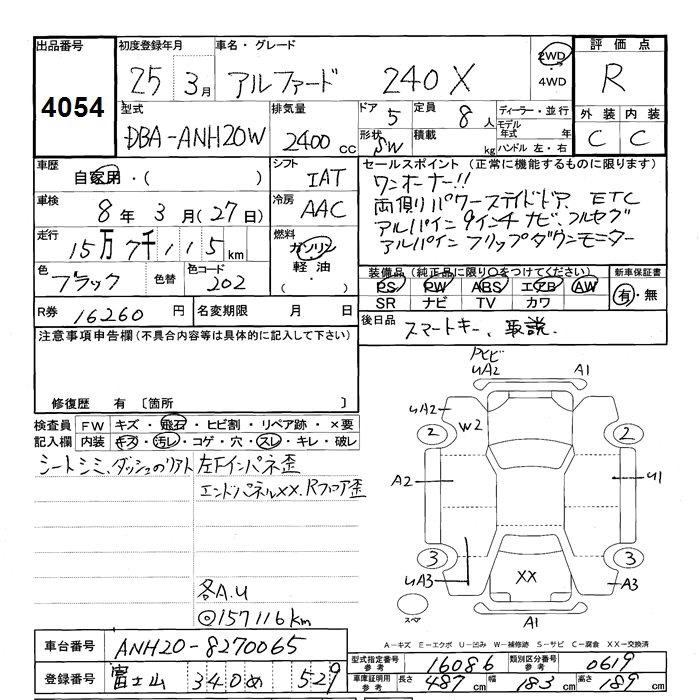 出品番号 初度登録年月 車名・グレード 2WD・4WD 評価点
4054 25 3月 アルファード 240X R
型式 排気量 ドア 5 定員 8人 ディーラー・並行 外装 内装
DBA-ANH20W 2400cc 形状 SW 積載 kg モデル年式 年 ハンドル 左・右 C C
車歴 自家用・( ) シフト IAT
車検 8年3月(27日) 冷房 AAC
走行 15万7千115km 燃料 ガソリン・軽油・( )
色 ブラック 色替 色コード 202
R券 16260円 名変期限 月 日
セールスポイント(正常に機能するものに限ります)
ワンオーナー!!
両側パワースライドドア、ETC
アルパイン9インチナビ、フルセグ
アルパインフリップダウンモニター
装備品(純正品に限り○をつけてください) 新車保証書
PS PW ABS エアB AW 有・無
SR ナビ TV カワ
後日品 スマートキー、取説
注意事項申告欄(不具合内容等は具体的に記入して下さい)
修復歴 有〔箇所 〕
検査員記入欄 FW キズ・飛石・ヒビ割・リペア跡・×要
内装 キズ・汚レ・コゲ・穴・スレ・キレ・破レ
シートシミ、ダッシュのリアト 左Fインパネ歪
エンドパネルXX、Rフロア歪
各A.U
◎157116km
車台番号 ANH20-8270065
登録番号 富士山 340 め 529
飛ビ
UA2 A1
UA2 W2
2 2
A2 U1
3 3
UA3 XX A3
スペア A1
A-キズ E-エクボ U-凹み W-補修跡 S-サビ C-腐食 XX-交換済
型式指定番号 参考 16086 類別区分番号 参考 0619
車庫証明用 参考 長さ 487cm 幅 183cm 高さ 189cm